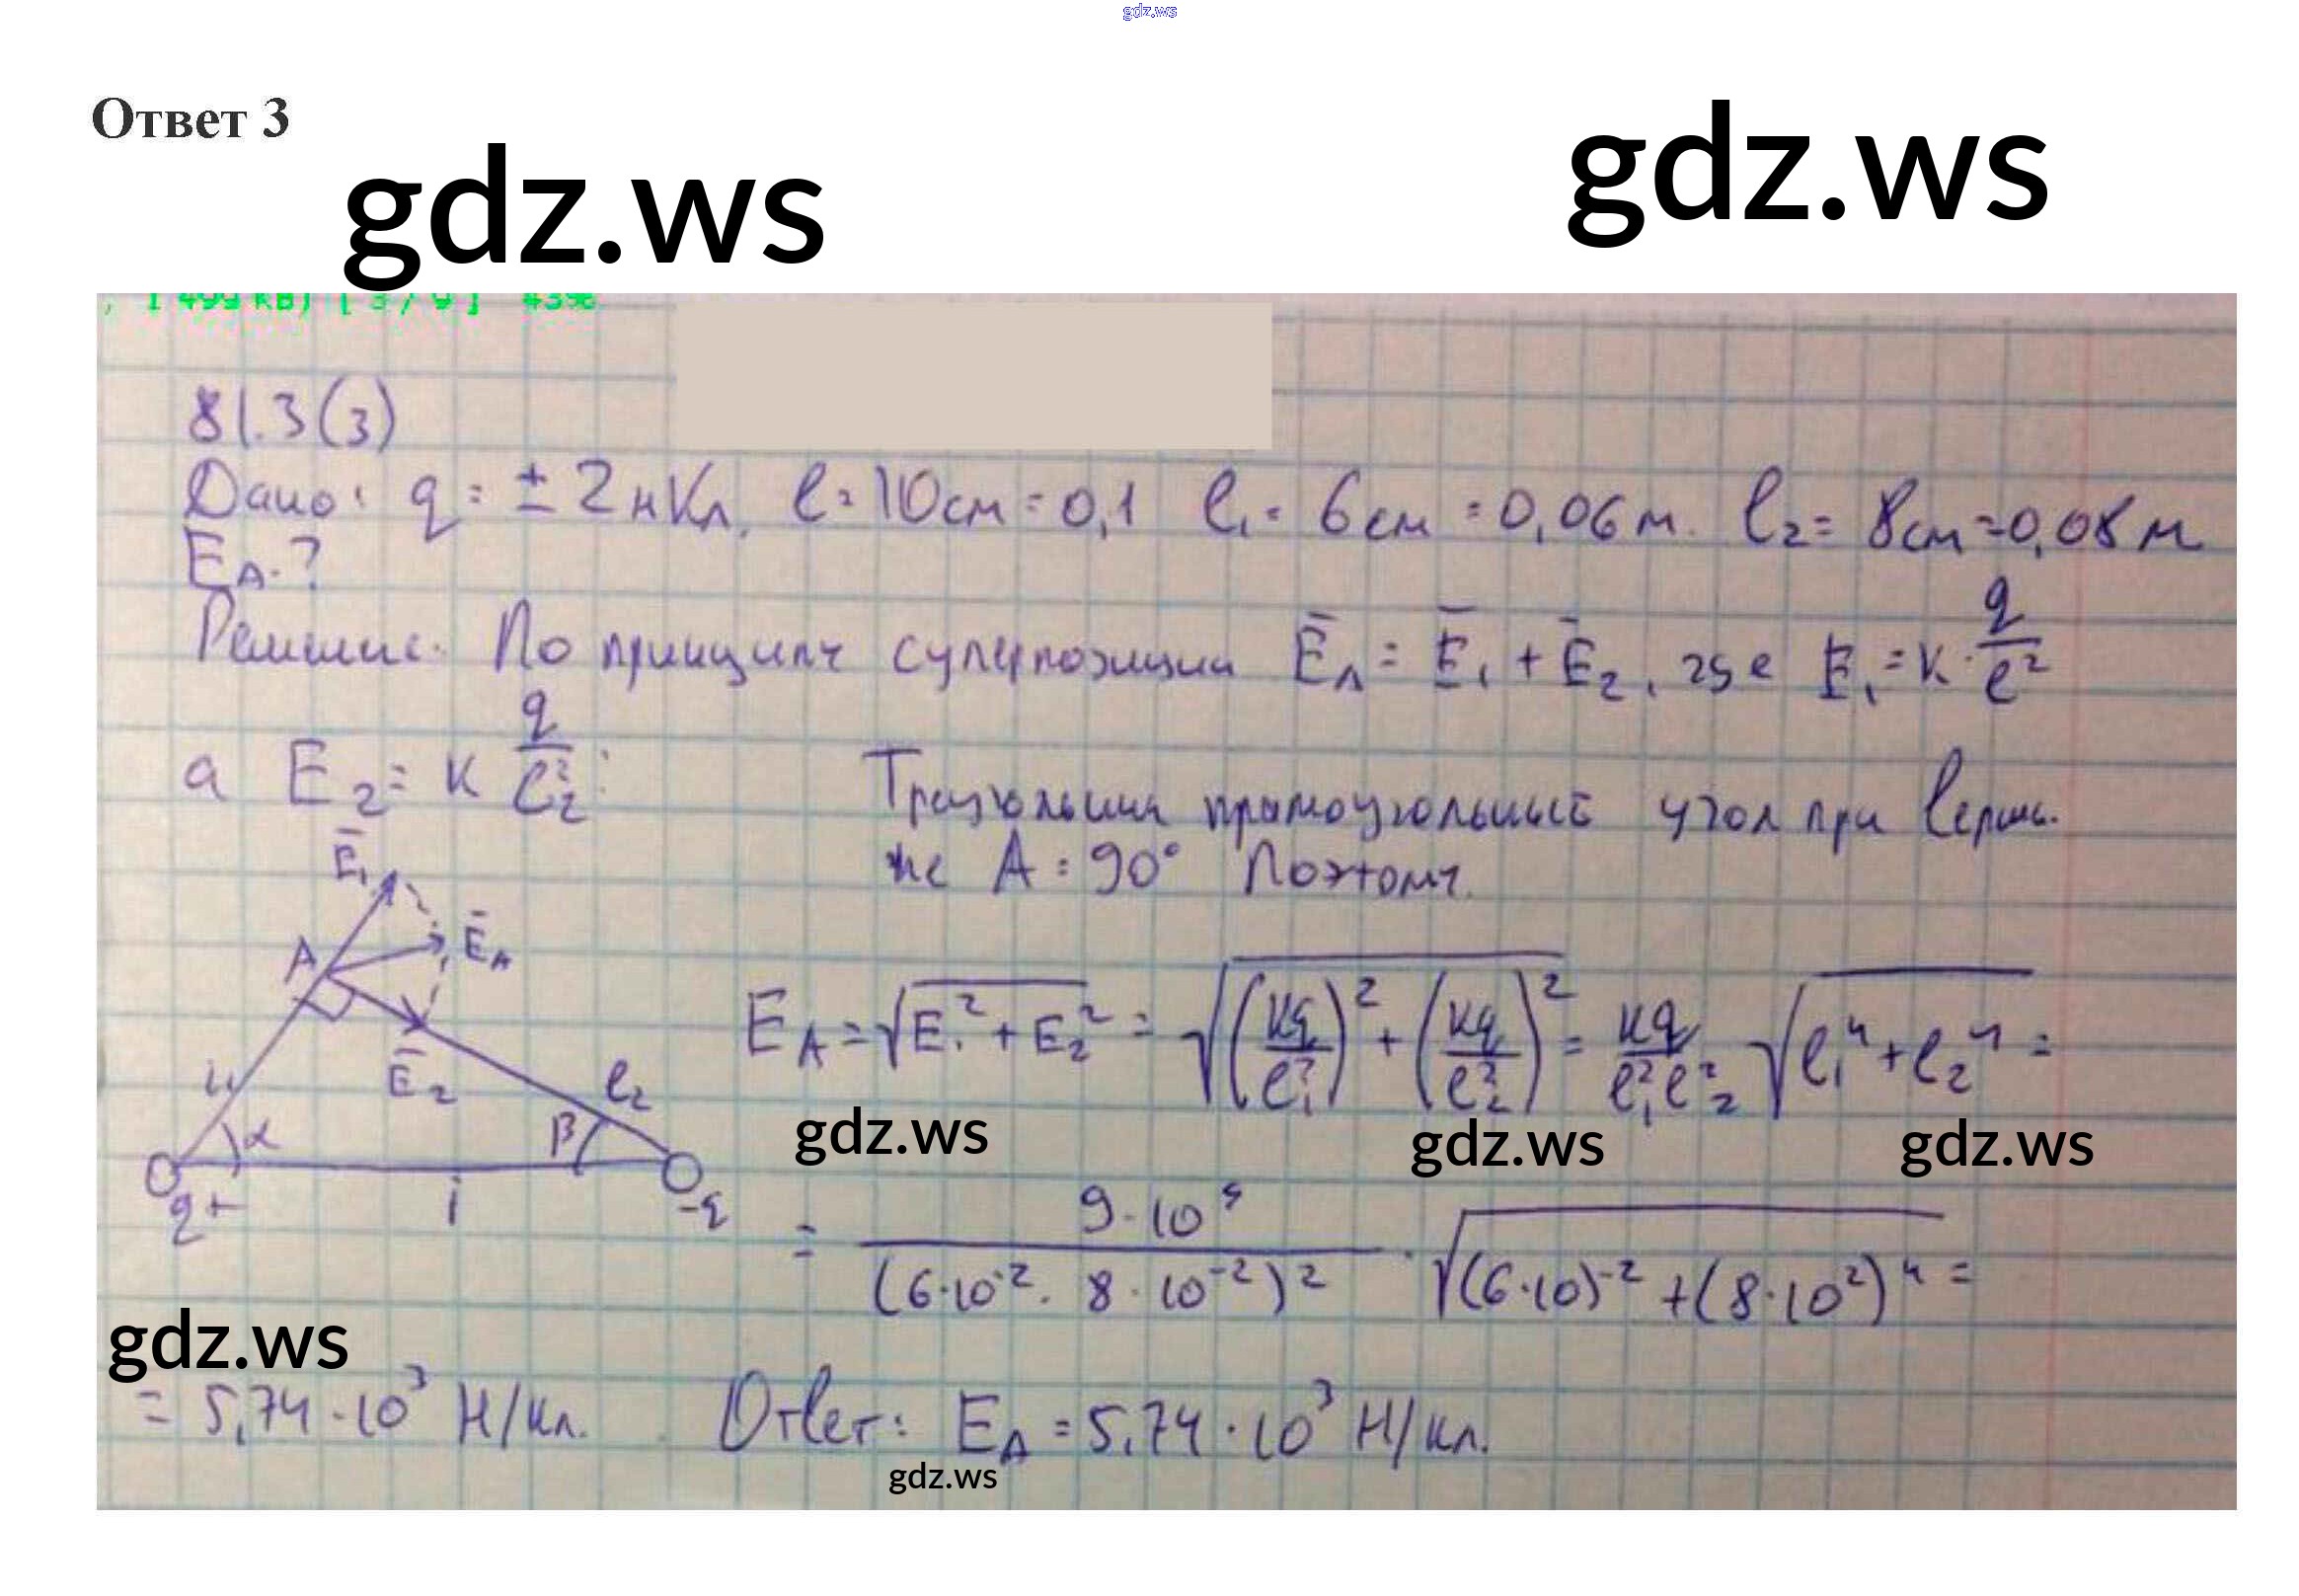 gdz.ws
Ответ 3
gdz.ws gdz.ws
81.3(3)
Дано: q = ± 2 нКл, l = 10 см = 0,1 l₁ = 6 см = 0,06 м. l₂ = 8 см = 0,08 м
E_A - ?
Решение. По принципу суперпозиции Ē_A = Ē₁ + Ē₂, где E₁ = к · q/l²
а E₂ = к q/l₂²
Треугольник прямоугольный угол при верши-
не A = 90° Поэтому.
Ē₁
A Ē_A
E_A = √(E₁² + E₂²) = √((кq/l₁²)² + (кq/l₂²)²) = кq/(l₁² l₂²) √(l₁⁴ + l₂⁴) =
Ē₂ l₂
gdz.ws gdz.ws gdz.ws
α β
q+ -q
= 9·10⁹/(6·10⁻² · 8·10⁻²)² · √((6·10)⁻² + (8·10²)⁴) =
gdz.ws
= 5,74·10³ Н/Кл. Ответ: E_A = 5,74·10³ Н/Кл.
gdz.ws